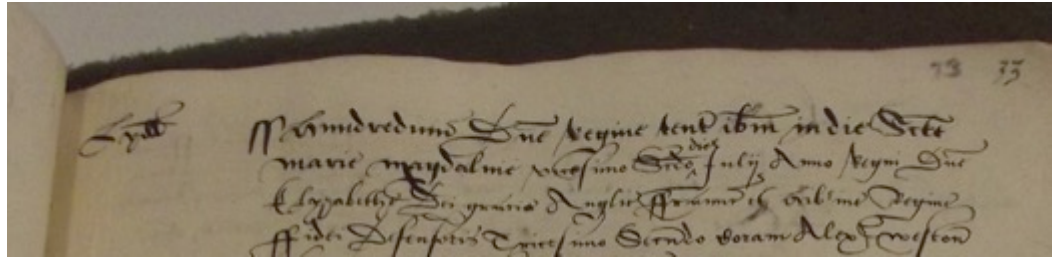 33 33
Hundredum Dne Regine tent ibm in die Scte
marie magdalene vicesimo Scdo die Julij Anno Regni Dne
Elyzabethe Dei gracia Anglie ffrancie et hibnie Regine
ffidei Defensoris Tricesimo Secundo Coram Alexr Weston